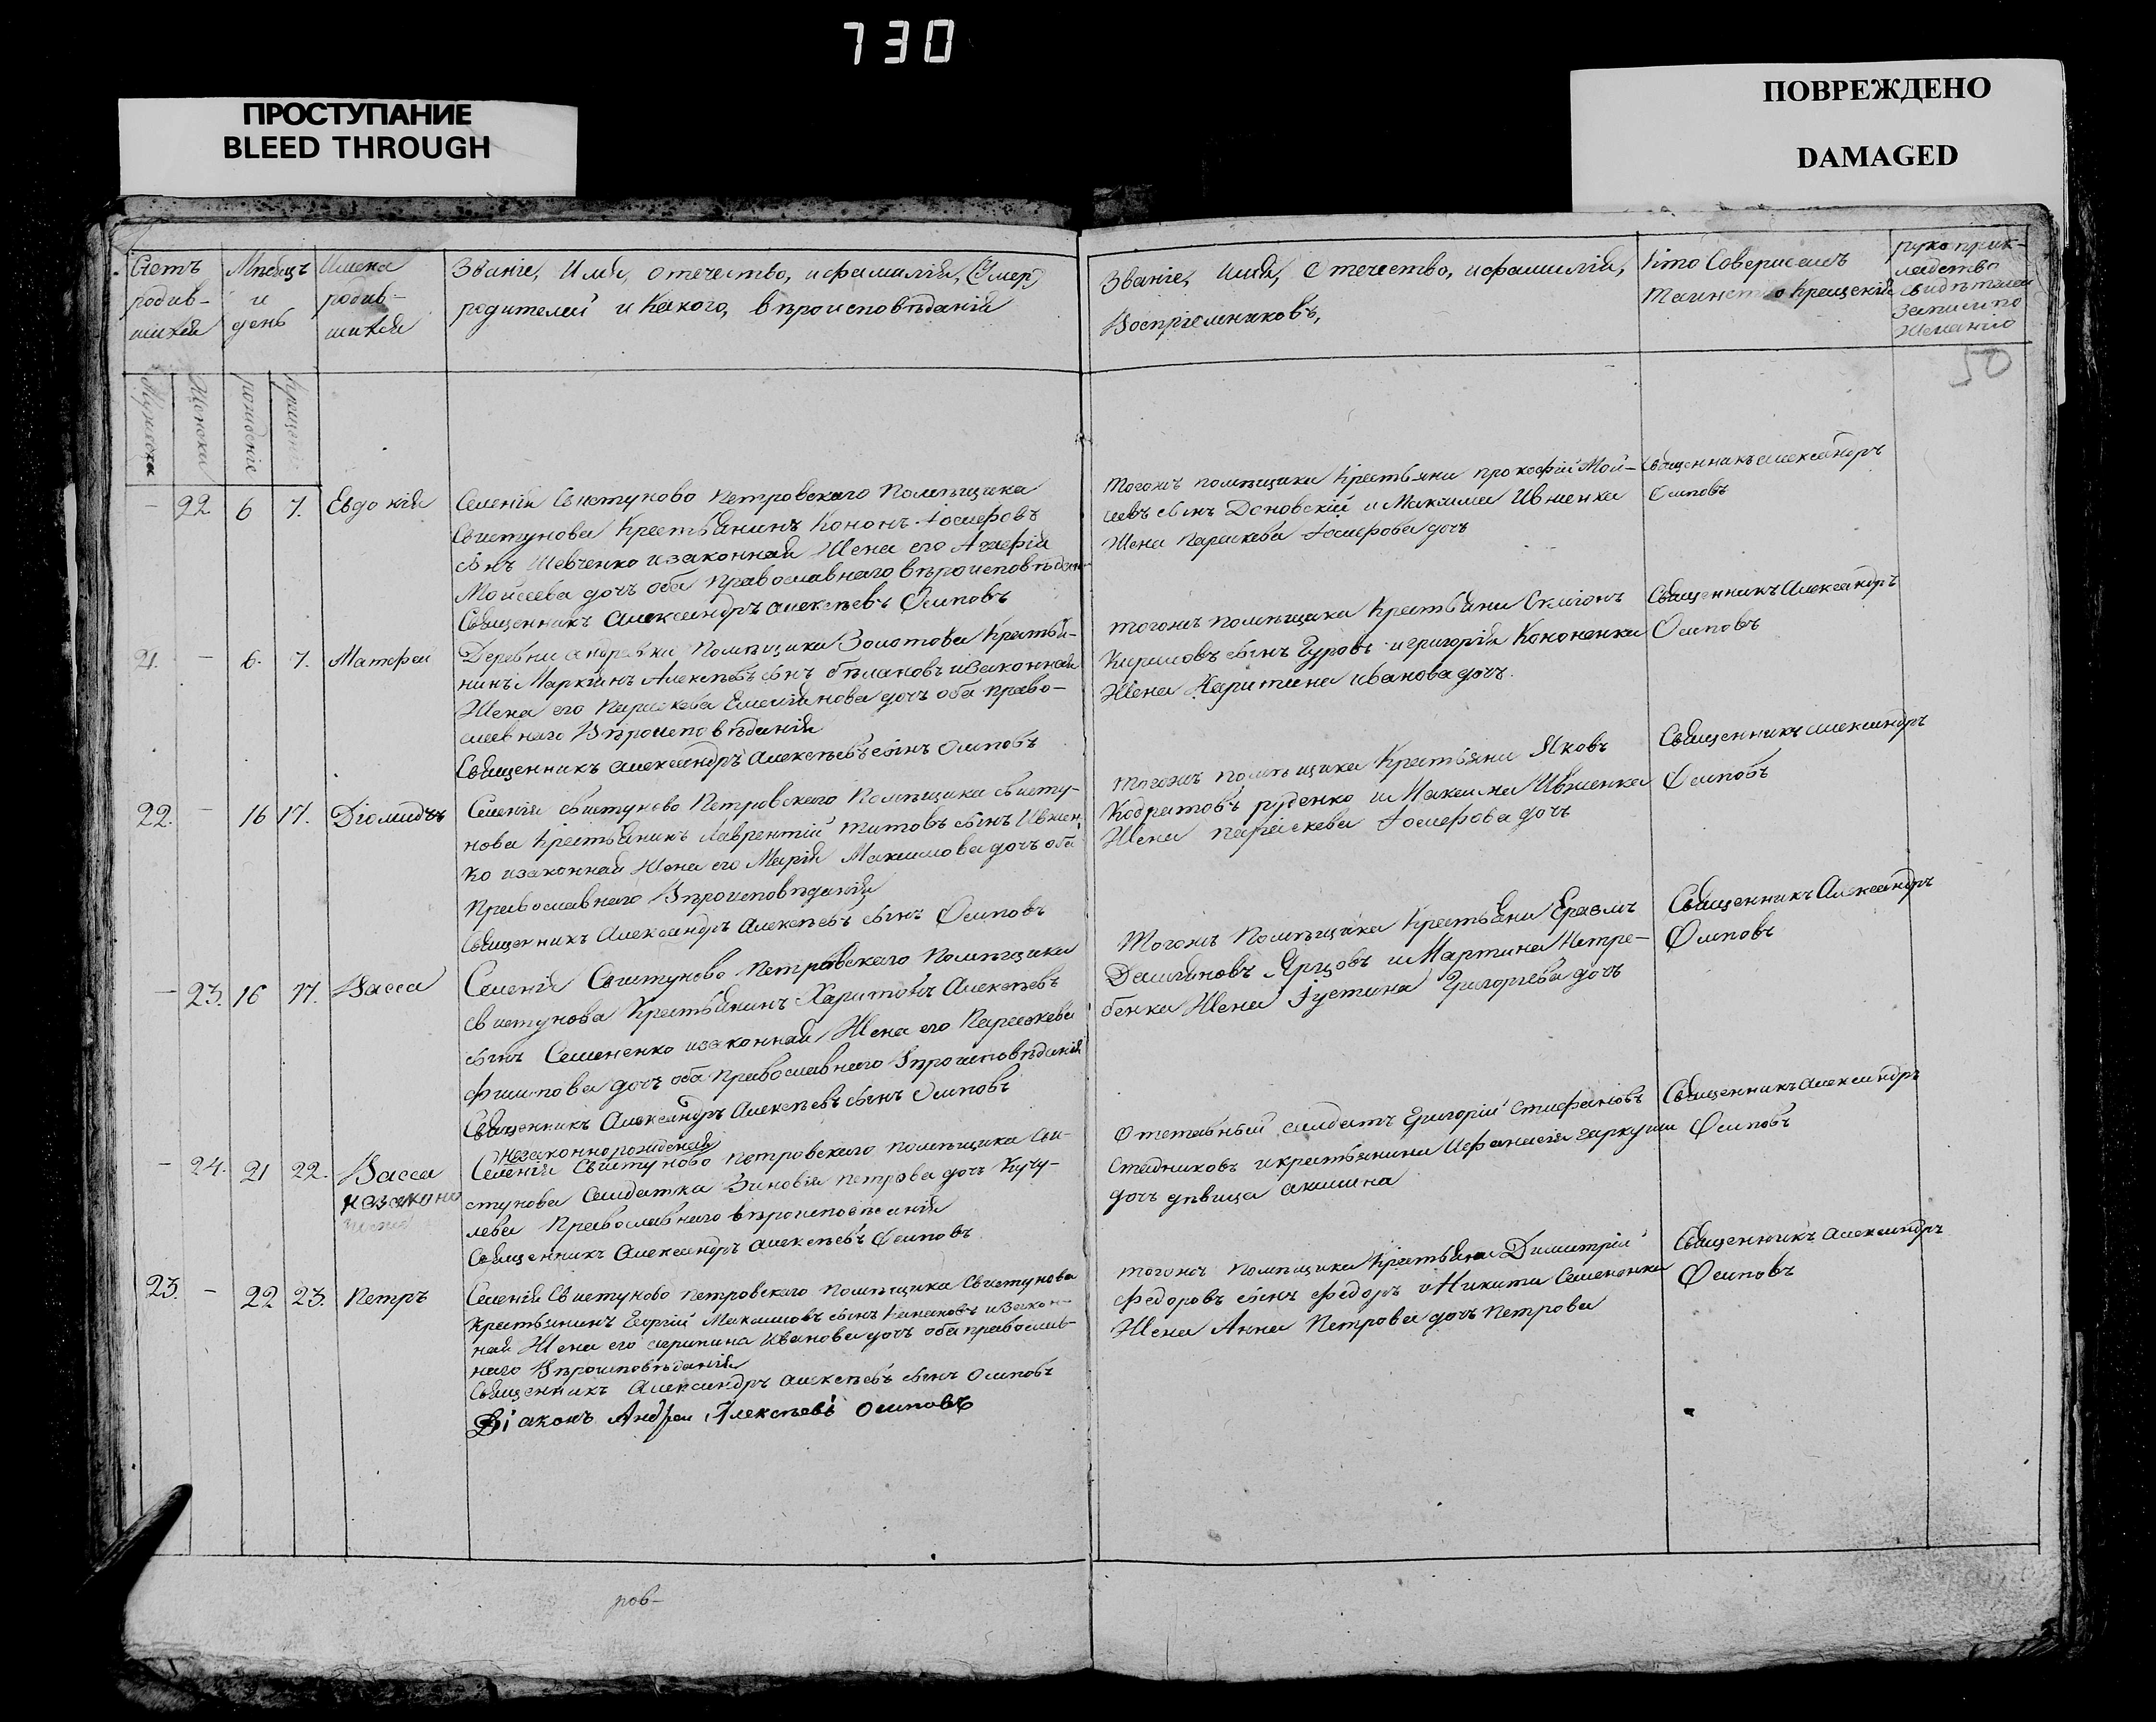 730
ПРОСТУПАНИЕ
BLEED THROUGH
ПОВРЕЖДЕНО
DAMAGED
Счетъ
родив-
шихся
Мѣсяцъ
и
день
Имена
родив-
шихся
Званіе, Имя, отечество, и фамилія,
родителей и Какого, вѣроисповѣданія
Званіе, имя, Отечество, и фамилія,
Воспріемниковъ,
Кто Совершалъ
таинство Крещенія
руко прик-
ладство
свидѣтелей
записи по
желанію
50
Мужеска
Женска
рожденіе
Крещеніе
– 22 6 7. Евдокія
Селенія Свистуново Петровскаго Помѣщика
Свистунова Крестьянинъ Кононъ Іосифовъ
сынъ Шевченко и законная Жена его Агафія
Моисеева дочь оба Православнаго вѣроисповѣдан-
Священникъ Александръ Алексѣевъ Осиповъ
Тогожъ помѣщика Крестьяни прокофій Мои-
сеевъ сынъ Доновскій и Максима Ивженка
Жена Параскева Іосифова дочь
Священникъ Александръ
Осиповъ
21. – 6. 7. Матфей
Деревни андреевки Помѣщика Золотова Крестья-
нинъ Маркіянъ Алексѣевъ сынъ бѣлановъ и законная
Жена его Параскева Емелянова дочь оба право-
славнаго Вѣроисповѣданія
Священникъ Александръ Алексѣевъ сынъ Осиповъ
тогожъ помѣщика Крестьяни
Кириловъ сынъ Гуровъ и григорія Кононенка
Жена Харитина иванова дочь.
Священникъ Александръ
Осиповъ
22. – 16 17. Діомидъ
Селенія Свистуново Петровскаго Помѣщика Свисту-
нова Крестьянинъ Лаврентій титовъ сынъ Ивжен-
ко и законная Жена его Марія Максимова дочь оба
Православнаго Вѣроисповѣданія
Священникъ Александръ Алексѣевъ сынъ Осиповъ
тогожъ помѣщика Крестьяни Яковъ
Кодратовъ руденко и Максима Ивженка
Жена параскева Іосифова дочь
Священникъ Александръ
Осиповъ
– 23. 16 17. Васса
Селенія Свистуново Петровскаго Помѣщика
Свистунова Крестьянинъ Харитонъ Алексѣевъ
сынъ Семененко и законная Жена его Параскева
Филипова дочь оба Православнаго Вѣроисповѣданія
Священникъ Александръ Алексѣевъ сынъ Осиповъ
Тогожъ Помѣщика Крестьяни Еразмъ
Демяновъ и Мартина Нетре-
бенка Жена Іустина Григорьева дочь
Священникъ Александръ
Осиповъ
– 24. 21 22. Васса
незаконо
незаконнорожденая
Селенія Свистуново петровскаго помѣщика Сви-
стунова Солдатка Зиновія петрова дочь Кучу-
лева Православнаго вѣроисповѣданія
Священникъ Александръ Алексѣевъ Осиповъ
Отставный салдатъ Григорій Стифановъ
Стадниковъ и крестьянина Афанасія гаркуши
дочь дѣвица акилина
Священникъ Александръ
Осиповъ
23. – 22 23. Петръ
Селенія Свистуново петровскаго помѣщика Свистунова
Крестьянинъ Георгій Максимовъ сынъ и закон-
ная Жена его агрипина Иванова дочь оба православ-
наго Вѣроисповѣданія
Священникъ Александръ Алексѣевъ сынъ Осиповъ
Діаконъ Андрей Алексѣевъ Осиповъ
тогожъ помѣщика Крестьяни Димитрій
Федоровъ сынъ Федоръ и Никита Семененка
Жена Анна Петрова дочь Петрова
Священникъ Александръ
Осиповъ
ров-